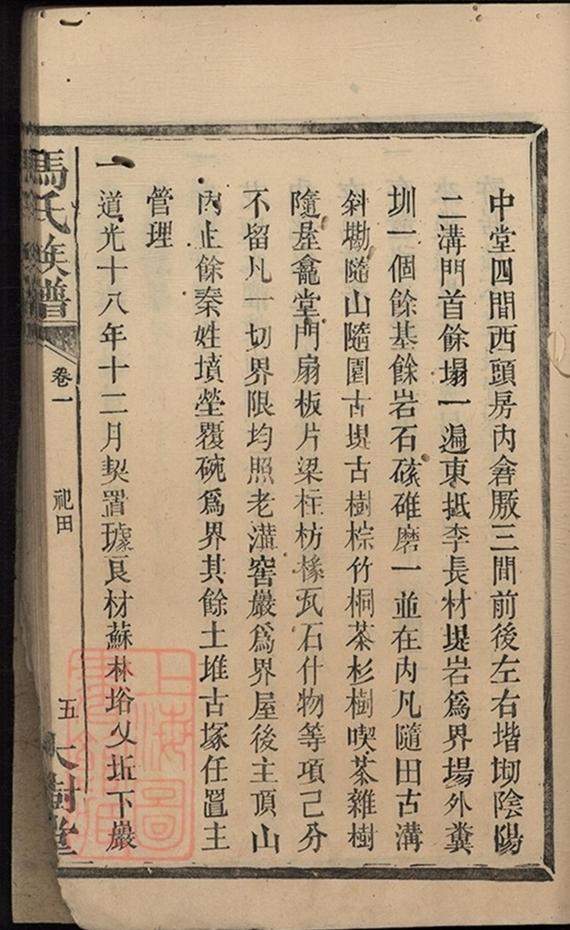 中堂四間西頭房內倉厫三間前後左右堦㘭陰陽
二溝門首餘塌一遍東抵李長材堤岩爲界塲外糞
圳一個餘基餘岩石磙碓磨一並在內凡隨田古溝
斜墈隨山隨園古堤古樹棕竹桐茶杉樹喫茶雜樹
隨屋龕堂門扇板片梁柱枋椽瓦石什物等項己分
不留凡一切界限均照老灌窖嚴爲界屋後主頂山
內止餘秦姓墳塋覆碗爲界其餘土堆古塚任置主
管理
一道光十八年十二月契置璩良材蘇林垳乂坵下巖
馬氏族譜
卷一
祀田
五
大樹堂
上海圖